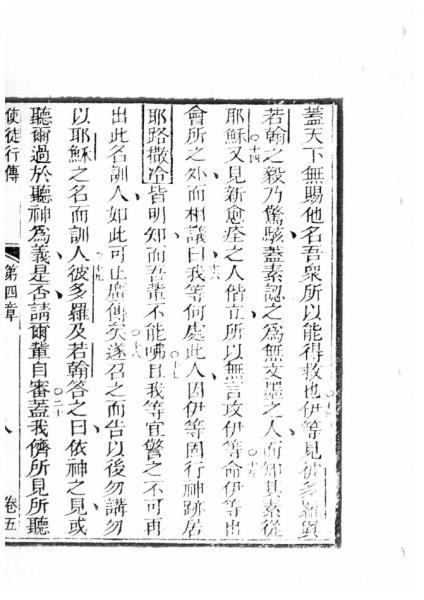 蓋天下無賜他名吾衆所以能得救也伊等見彼多羅與
若翰之毅乃驚駭蓋素認之為無文墨之人而知其素從
耶穌又見新愈痊之人偕立所以無言攻伊等命伊等出
會所之外而相議曰我等何處此人因伊等固行神跡居
耶路撒冷皆明知而吾輩不能咈且我等宜警之不可再
出此名訓人如此可止廣傳矣遂召之而告以後勿講勿
以耶穌之名而訓人彼多羅及若翰答之曰依神之見或
聽爾過於聽神為義是否請爾輩自審蓋我儕所見所聽
使徒行傳 第四章 八 卷五